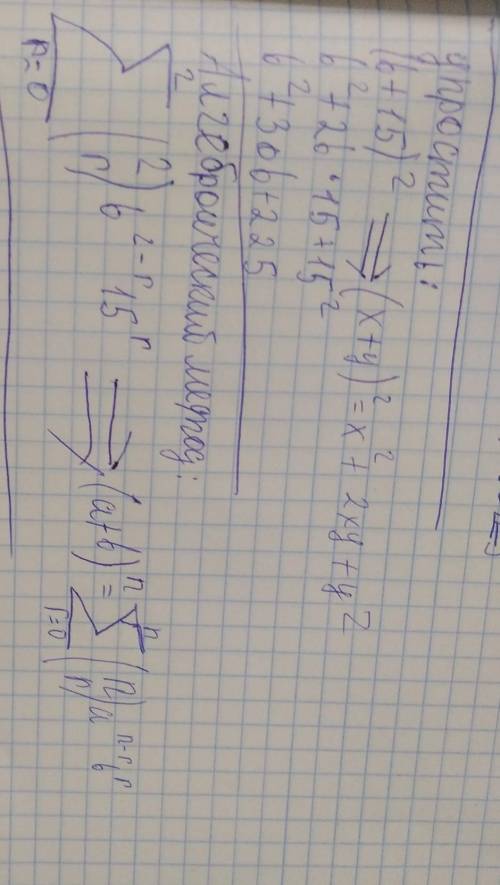 Упростить:
(b+15)² ⇒ (x+y)² = x² + 2xy + y²
b² + 2b · 15 + 15²
b² + 30b + 225
Алгебраический метод:
2
∑ (2 r) b²⁻ʳ 15ʳ ⇒ (a+b)ⁿ = ∑ⁿ (n r) aⁿ⁻ʳ bʳ
r=0 r=0